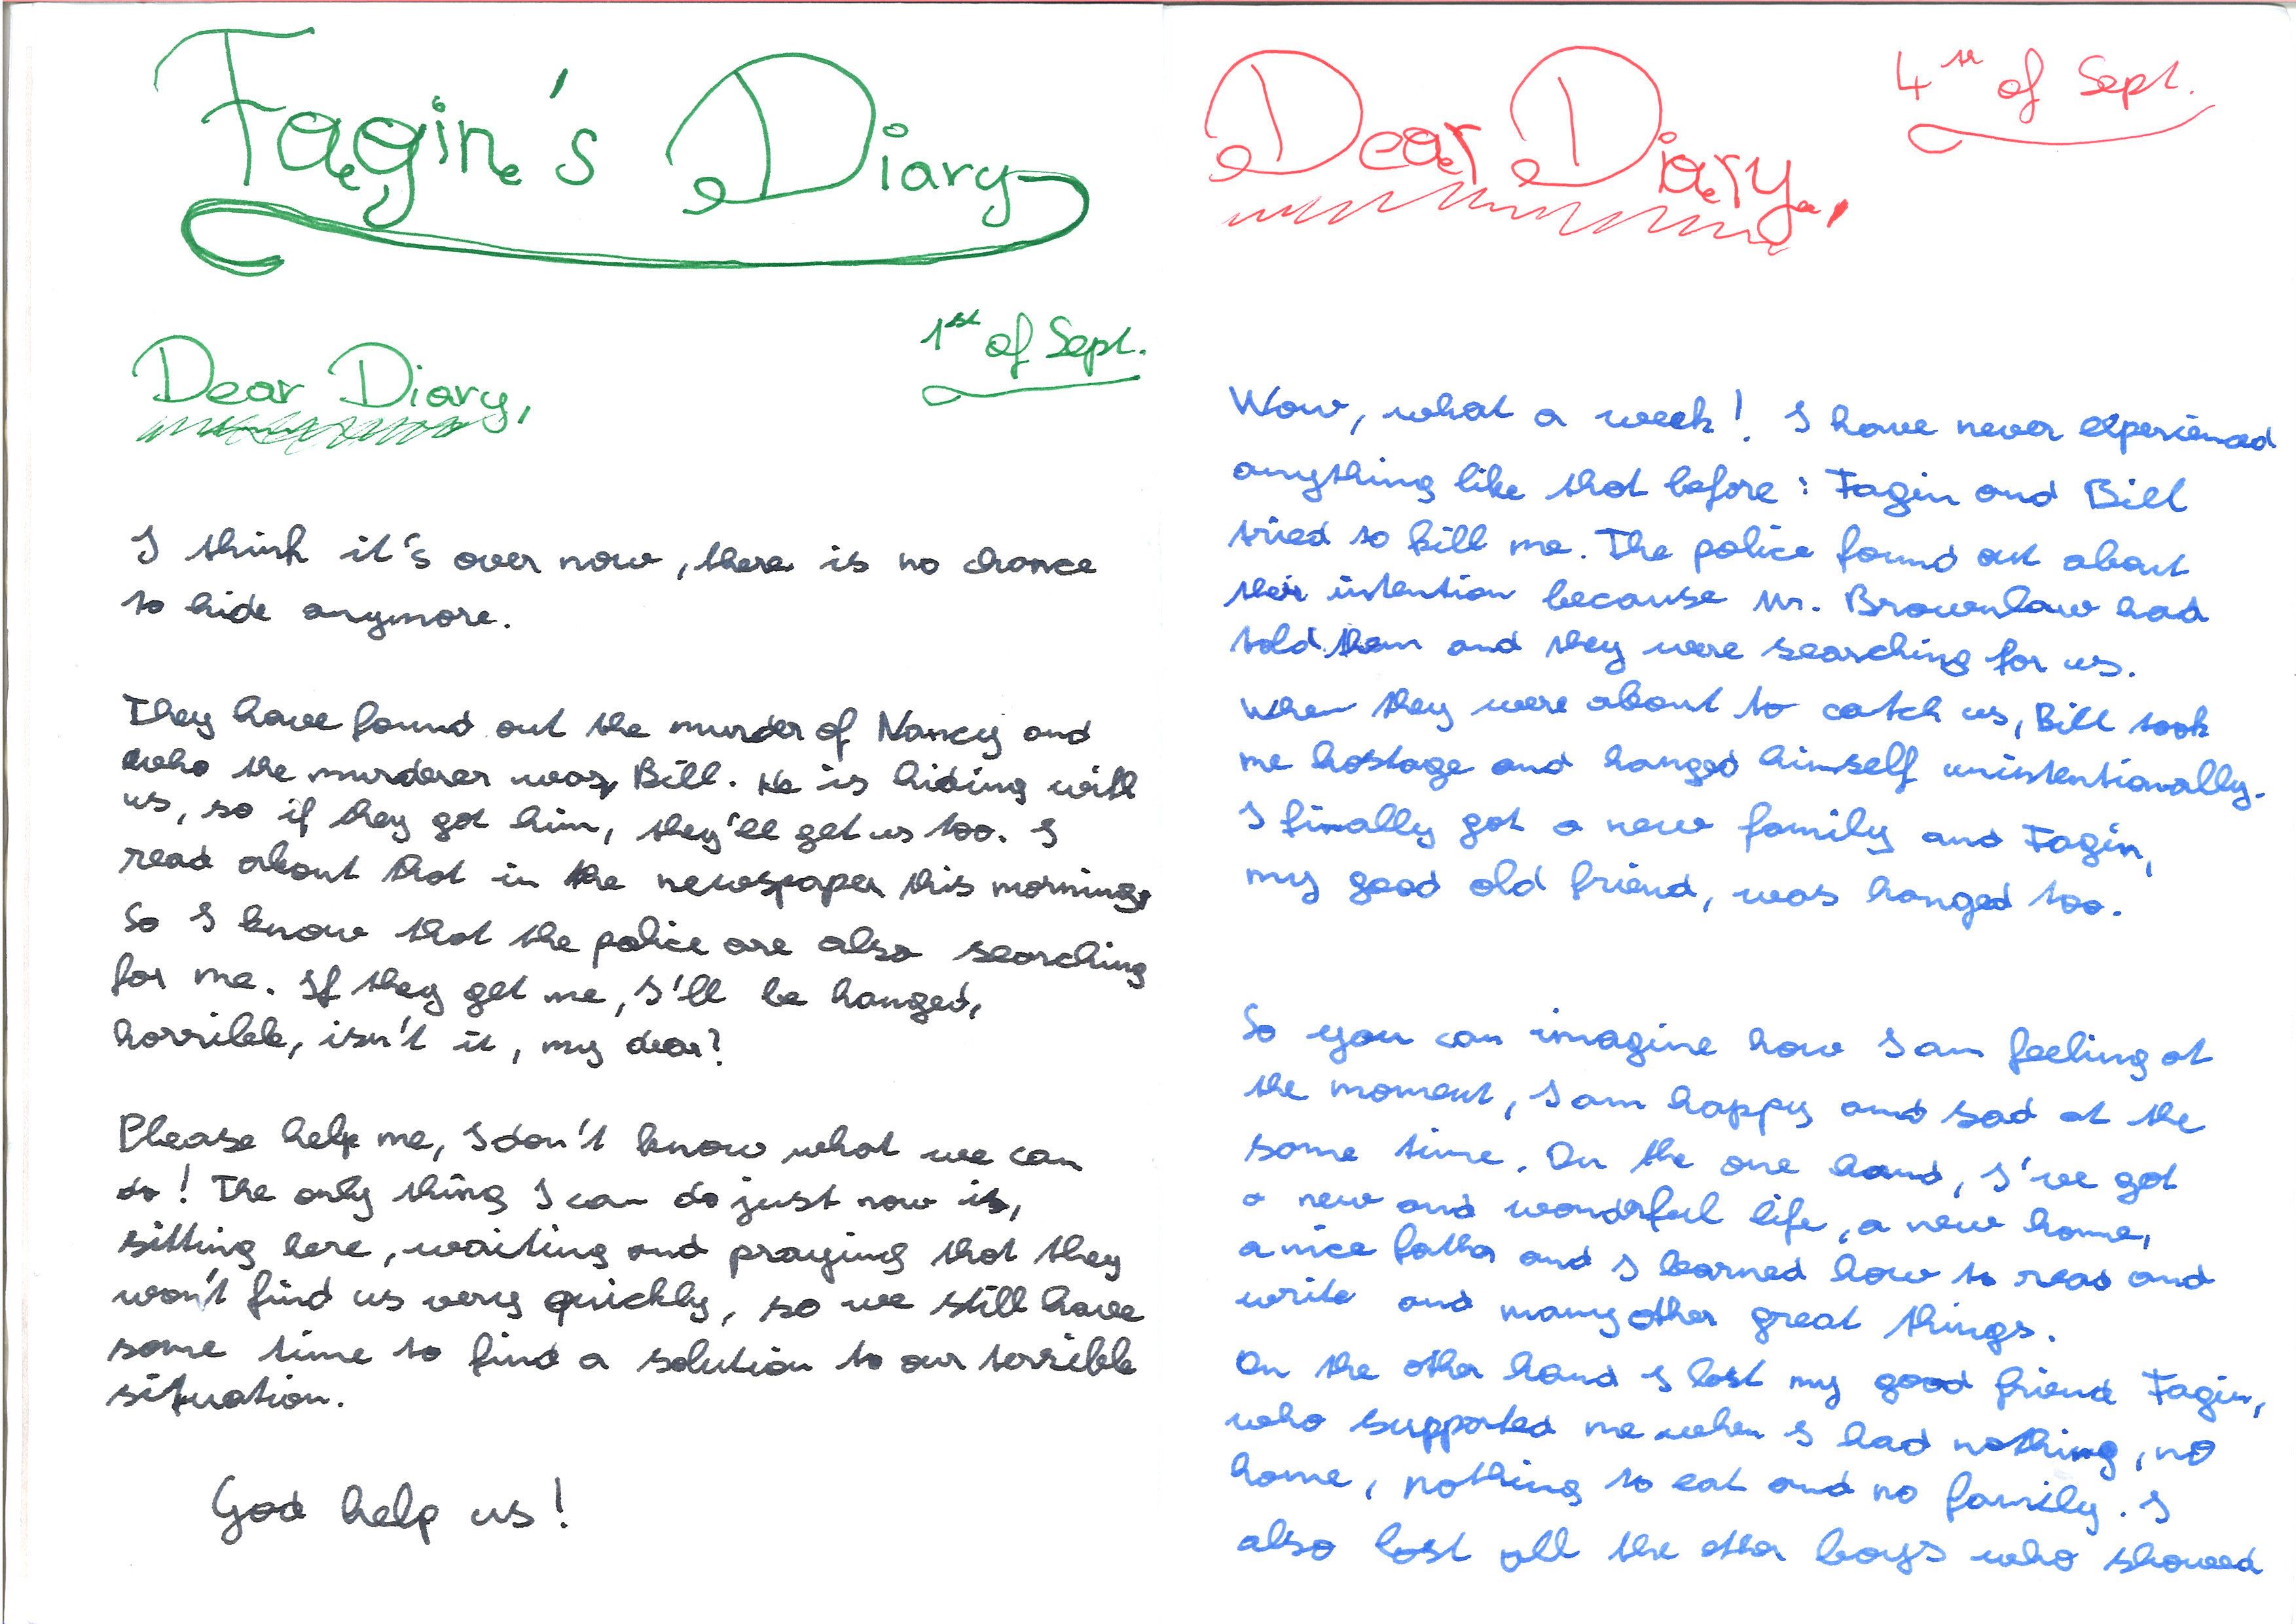 Fagin's Diary
1st of Sept.
Dear Diary,
I think it's over now, there is no chance
to hide anymore.
They have found out the murder of Nancy and
who the murderer was, Bill. He is hiding with
us, so if they got him, they'll get us too. I
read about that in the newspaper this morning,
So I know that the police are also searching
for me. If they get me, I'll be hanged,
horrible, isn't it, my dear?
Please help me, I don't know what we can
do! The only thing I can do just now is,
sitting here, waiting and praying that they
won't find us very quickly, so we still have
some time to find a solution to our terrible
situation.
God help us!
4th of Sept.
Dear Diary,
Wow, what a week! I have never experienced
anything like that before: Fagin and Bill
tried to kill me. The police found out about
their intention because Mr. Brownlow had
told them and they were searching for us.
When they were about to catch us, Bill took
me hostage and hanged himself unintentionally.
I finally got a new family and Fagin,
my good old friend, was hanged too.
So you can imagine how I am feeling at
the moment, I am happy and sad at the
same time. On the one hand, I've got
a new and wonderful life, a new home,
a nice father and I learned how to read and
write and many other great things.
On the other hand I lost my good friend Fagin,
who supported me when I had nothing, no
home, nothing to eat and no family. I
also lost all the other boys who showed